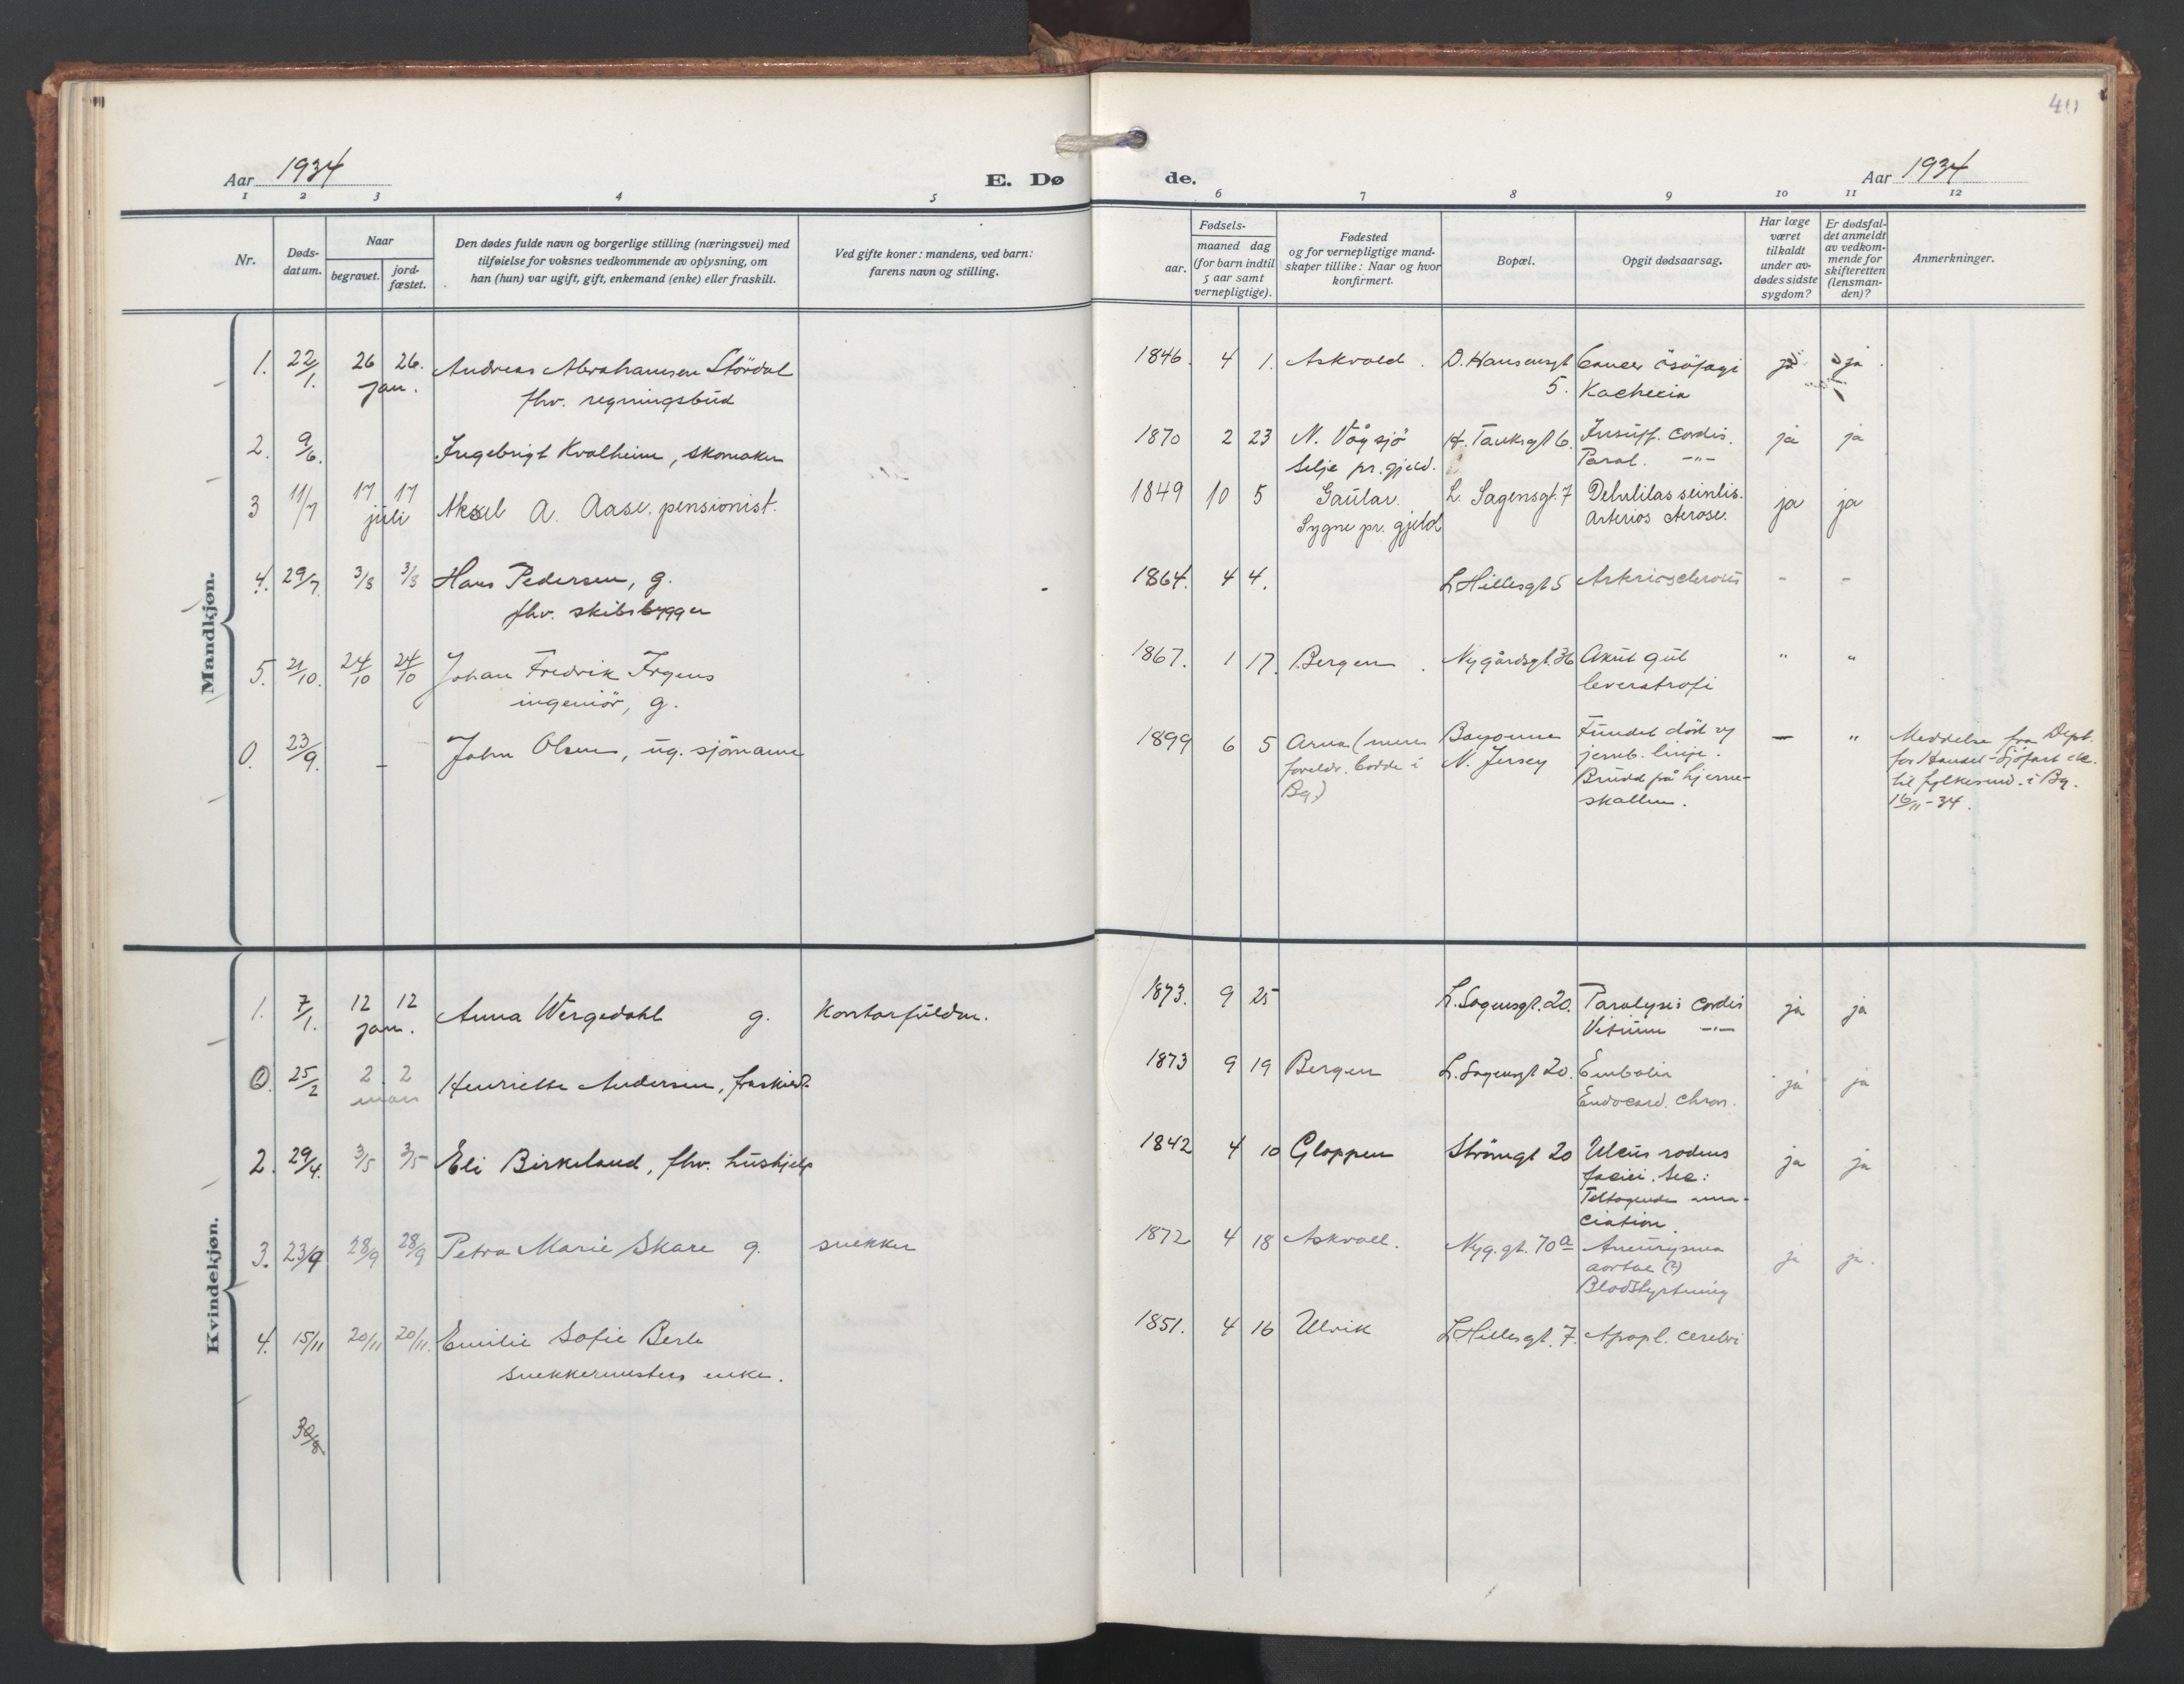 40
Aar 1934
E. Dø
de.
Aar 1934
1 2 3 4 5 6 7 8 9 10 11 12
Nr.
Døds-
datum.
Naar
begravet.
jord-
fæstet.
Den dødes fulde navn og borgerlige stilling (næringsvei) med
tilføielse for voksnes vedkommende av oplysning, om
han (hun) var ugift, gift, enkemand (enke) eller fraskilt.
Ved gifte koner: mandens, ved barn:
farens navn og stilling.
Fødsels-
aar.
maaned dag
(for barn indtil
5 aar samt
vernepligtige).
Fødested
og for vernepligtige mand-
skaper tillike: Naar og hvor
konfirmert.
Bopæl.
Opgit dødsaarsag.
Har læge
været
tilkaldt
under av-
dødes sidste
sygdom?
Er dødsfal-
det anmeldt
av vedkom-
mende for
skifteretten
(lensman-
den)?
Anmerkninger.
Mandkjøn.
1. 22/1. 26 26. Andreas Abrahamsen Stördal 1846. 4 1. Askvold. D. Hansensgt Cancer ösöfagi ja ja.
jan. fhv. regningsbud 5. Kachecia
2. 9/6. Ingebrigt Kvalheim, skomaker 1870 2 23 N. Vågsjö H. Tanksgt 6. Insuff. cordis. ja ja
Selje pr.gjeld. Paral. -"-
3 11/7 17 17 Aksel A. Aase. pensionist. 1849 10 5 Gaular. L. Sagensgt. 7 Debilitas seinlis. ja ja
juli Sygne pr. gjeld Arterios clerose.
4. 29/7 3/8 3/8 Hans Pedersen, g. 1864. 4 4. L Hillesgt 5 Arteriosclerosis - -
fhv. skibsbygger
5. 21/10. 24/10 24/10 Johan Fredrik Irgens 1867. 1 17. Bergen. Nygårdsgt. 36 Akut gul " "
ingeniör, g. leveratrofi
0. 23/9. - John Olsen, ug. sjömann 1899 6 5 Arna (men Bayonne Fundet död ved — " Meddelse fra Dept.
foreldr. bodde i N. Jersey jernb. linje. for Handel-Sjöfart etc.
Bg.) Brudd på hjerne- til fylkesmd. i Bg.
skallen. 16/11-34.
Kvindekjøn.
1. 7/1. 12 12 Anna Wergedahl g. Kontorfuldm. 1873. 9 25 L. Sagensgt. 20. Paralysis cordis ja ja
jan. Vitium -"-
0. 25/2 2. 2 Henriette Andersen, fraskilt 1873 9 19 Bergen L. Sagensgt 20. Embolia ja ja
mars Endocard. chron.
2. 29/4. 3/5 3/5 Eli Birkeland, fhv. hushjelp 1842 4 10 Gloppen Strömgt 20 Ulcus rodens ja ja
faciei. Sec:
Tiltagende ema-
ciation.
3. 23/9 28/9 28/9 Petra Marie Skare g. snekker 1872 4 18 Askvoll. Nyg.gt. 70a Aneurysma ja ja.
aortae (?)
Blodstyrtning
4. 15/11 20/11 20/11. Emilie Sofie Berle 1851. 4 16 Ulvik L Hillesgt. 7. Apopl. cerebri
snekkermesters enke.
30/8